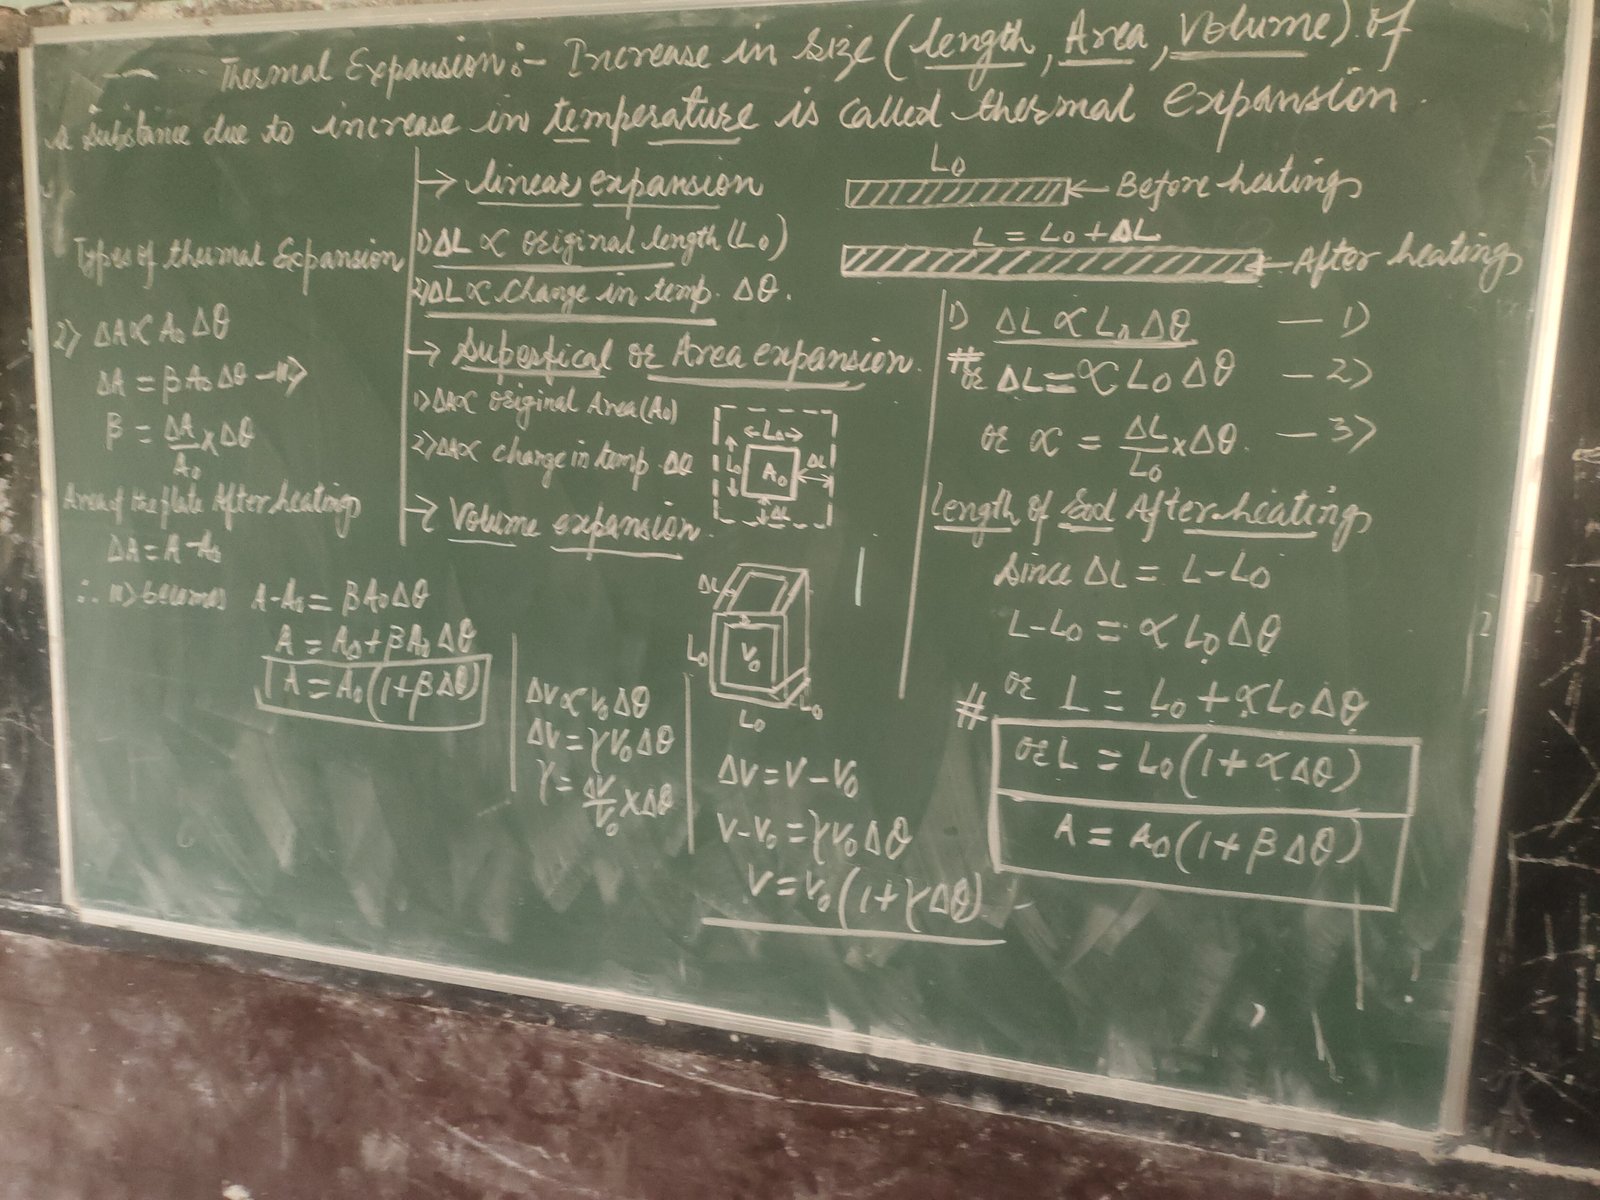 Thermal Expansion :- Increase in size (length, Area, Volume) of
a substance due to increase in temperature is called thermal Expansion.
Types of thermal Expansion
→ linear expansion
1) ΔL ∝ original length (L₀)
2) ΔL ∝ change in temp. Δθ.
→ Superfical or Area expansion.
1) ΔA ∝ original Area (A₀)
2) ΔA ∝ change in temp. Δθ
→ Volume expansion.
L₀
← Before heating
L = L₀ + ΔL
← After heating
1) ΔL ∝ L₀ Δθ — 1)
# or ΔL = ∝ L₀ Δθ — 2)
or ∝ = ΔL/L₀ × Δθ. — 3)
length of rod After heating
Since ΔL = L - L₀
L - L₀ = ∝ L₀ Δθ
or L = L₀ + ∝ L₀ Δθ
# or L = L₀ (1 + ∝ Δθ)
A = A₀ (1 + β Δθ)
2) ΔA ∝ A₀ Δθ
ΔA = β A₀ Δθ — 11)
β = ΔA/A₀ × Δθ
Area of the plate After heating
ΔA = A - A₀
∴ 11) becomes A - A₀ = β A₀ Δθ
A = A₀ + β A₀ Δθ
A = A₀ (1 + β Δθ)
L₀
L₀ A₀ ΔL
ΔL
ΔL
L₀ V₀
L₀
L₀
ΔV ∝ V₀ Δθ
ΔV = γ V₀ Δθ
γ = ΔV/V₀ × Δθ
ΔV = V - V₀
V - V₀ = γ V₀ Δθ
V = V₀ (1 + γ Δθ)